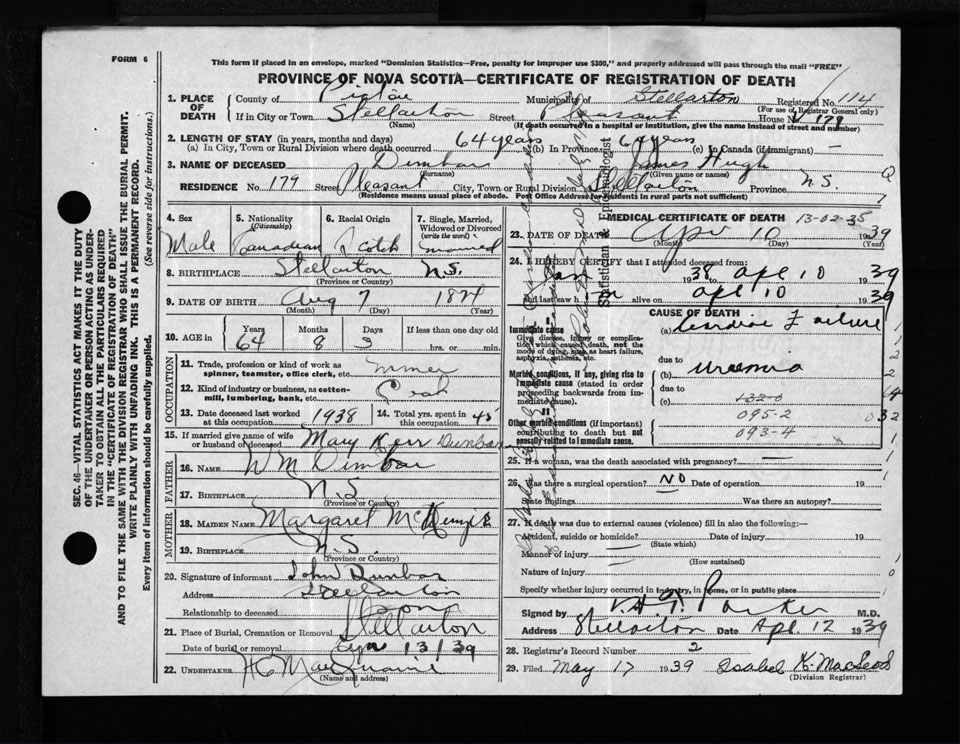 FORM 6
This form if placed in an envelope, marked "Dominion Statistics—Free, penalty for improper use $300," and properly addressed will pass through the mail "FREE"
PROVINCE OF NOVA SCOTIA—CERTIFICATE OF REGISTRATION OF DEATH
1. PLACE OF DEATH { County of Pictou Municipality of Stellarton Registered No. 114
(For use of Registrar General only)
If in City or Town Stellarton Street Pleasant House No. 179
(Name) (If death occurred in a hospital or institution, give the name instead of street and number)
2. LENGTH OF STAY (in years, months and days)
(a) In City, Town or Rural Division where death occurred 64 years (b) In Province 64 years (c) In Canada (if immigrant) —
3. NAME OF DECEASED Dunbar James Hugh
(Surname) (Given name or names)
RESIDENCE No. 179 Street Pleasant City, Town or Rural Division Stellarton Province N.S.
(Residence means usual place of abode. Post Office Address for residents in rural parts not sufficient)
4. Sex Male
5. Nationality (Citizenship) Canadian
6. Racial Origin Scotch
7. Single, Married, Widowed or Divorced (write the word) married
8. BIRTHPLACE Stellarton N.S.
(Province or Country)
9. DATE OF BIRTH Aug 7 1874
(Month) (Day) (Year)
10. AGE in { Years 64 Months 8 Days 3 If less than one day old hrs. or min.
OCCUPATION
11. Trade, profession or kind of work as spinner, teamster, office clerk, etc. miner
12. Kind of industry or business, as cotton-mill, lumbering, bank, etc. Coal
13. Date deceased last worked at this occupation 1938 14. Total yrs. spent in this occupation 45
15. If married give name of wife or husband of deceased Mary Kerr Dunbar
FATHER
16. NAME Wm Dunbar
17. BIRTHPLACE N.S.
(Province or Country)
MOTHER
18. MAIDEN NAME Margaret McKenzie
19. BIRTHPLACE N.S.
(Province or Country)
20. Signature of informant John Dunbar
Address Stellarton
Relationship to deceased son
21. Place of Burial, Cremation or Removal Stellarton
Date of burial or removal Apr 13/39
22. UNDERTAKER
(Name and address)
MEDICAL CERTIFICATE OF DEATH 13-02-35
23. DATE OF DEATH Apr 10 1939
(Month) (Day) (Year)
24. I HEREBY CERTIFY that I attended deceased from:
Jan 1938 apl 10 1939
and last saw h im alive on apl 10 1939
CAUSE OF DEATH
Immediate cause
Give disease, injury or complication which caused death, not the mode of dying, such as heart failure, asphyxia, asthenia, etc.
(a) Cardiac Failure
due to
Morbid conditions, if any, giving rise to immediate cause (stated in order proceeding backwards from immediate cause).
(b) Uraemia
due to
(c) 132-0
095-2
093-4
Other morbid conditions (if important) contributing to death but not causally related to immediate cause.
25. If a woman, was the death associated with pregnancy? —
26. Was there a surgical operation? NO Date of operation 19
State findings Was there an autopsy?
27. If death was due to external causes (violence) fill in also the following:—
Accident, suicide or homicide? Date of injury 19
(State which)
Manner of injury —
(How sustained)
Nature of injury —
Specify whether injury occurred in industry, in home, or in public place
Signed by Parker M.D.
Address Stellarton Date Apl. 12 1939
28. Registrar's Record Number 2
29. Filed May 17 1939 Isabel K. MacLeod
(Division Registrar)
Statistician & Epidemiologist
SEC. 46—VITAL STATISTICS ACT MAKES IT THE DUTY
OF THE UNDERTAKER OR PERSON ACTING AS UNDER-
TAKER TO OBTAIN ALL THE PARTICULARS REQUIRED
IN THE "CERTIFICATE OF REGISTRATION OF DEATH"
AND TO FILE THE SAME WITH THE DIVISION REGISTRAR WHO SHALL ISSUE THE BURIAL PERMIT.
WRITE PLAINLY WITH UNFADING INK. THIS IS A PERMANENT RECORD.
Every item of information should be carefully supplied. (See reverse side for instructions.)